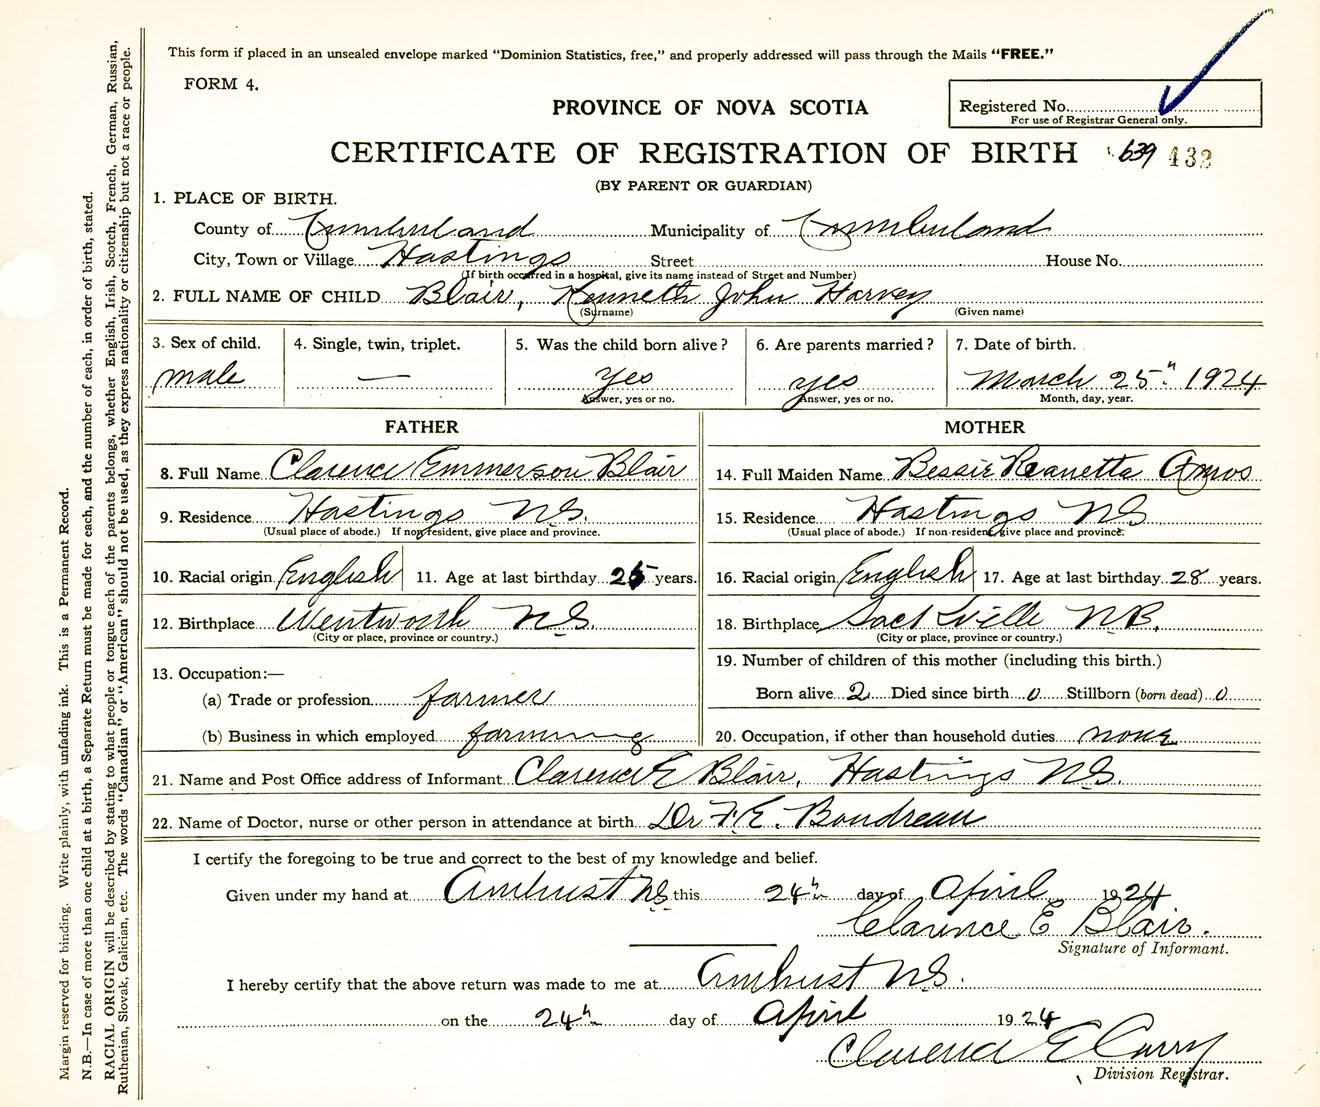 This form if placed in an unsealed envelope marked "Dominion Statistics, free," and properly addressed will pass through the Mails "FREE."
FORM 4.
PROVINCE OF NOVA SCOTIA
Registered No.
For use of Registrar General only.
CERTIFICATE OF REGISTRATION OF BIRTH 639 432
(BY PARENT OR GUARDIAN)
1. PLACE OF BIRTH.
County of Cumberland Municipality of Cumberland
City, Town or Village Hastings Street House No.
(If birth occurred in a hospital, give its name instead of Street and Number)
2. FULL NAME OF CHILD Blair, Kenneth John Harvey
(Surname) (Given name)
3. Sex of child. 4. Single, twin, triplet. 5. Was the child born alive? 6. Are parents married? 7. Date of birth.
male — Yes yes March 25th 1924
Answer, yes or no. Answer, yes or no. Month, day, year.
FATHER MOTHER
8. Full Name Clarence Emmerson Blair 14. Full Maiden Name Bessie Reanetta Amos
9. Residence Hastings N.S. 15. Residence Hastings NS
(Usual place of abode.) If non-resident, give place and province. (Usual place of abode.) If non-resident, give place and province.
10. Racial origin English 11. Age at last birthday 25 years. 16. Racial origin English 17. Age at last birthday 28 years.
12. Birthplace Wentworth N.S. 18. Birthplace Sackville N.B.
(City or place, province or country.) (City or place, province or country.)
13. Occupation:— 19. Number of children of this mother (including this birth.)
(a) Trade or profession farmer Born alive 2 Died since birth 0 Stillborn (born dead) 0
(b) Business in which employed farming 20. Occupation, if other than household duties none
21. Name and Post Office address of Informant Clarence E Blair, Hastings N.S.
22. Name of Doctor, nurse or other person in attendance at birth Dr F.E. Boudreau
I certify the foregoing to be true and correct to the best of my knowledge and belief.
Given under my hand at Amherst N.S. this 24th day of April 1924
Clarence E Blair.
Signature of Informant.
I hereby certify that the above return was made to me at Amherst N.S.
on the 24th day of April 1924
Clarence E Curry
Division Registrar.
Margin reserved for binding. Write plainly, with unfading ink. This is a Permanent Record.
N.B.—In case of more than one child at a birth, a Separate Return must be made for each, and the number of each, in order of birth, stated.
RACIAL ORIGIN will be described by stating to what people or tongue each of the parents belongs, whether English, Irish, Scotch, French, German, Russian,
Ruthenian, Slovak, Galician, etc. The words "Canadian" or "American" should not be used, as they express nationality or citizenship but not a race or people.